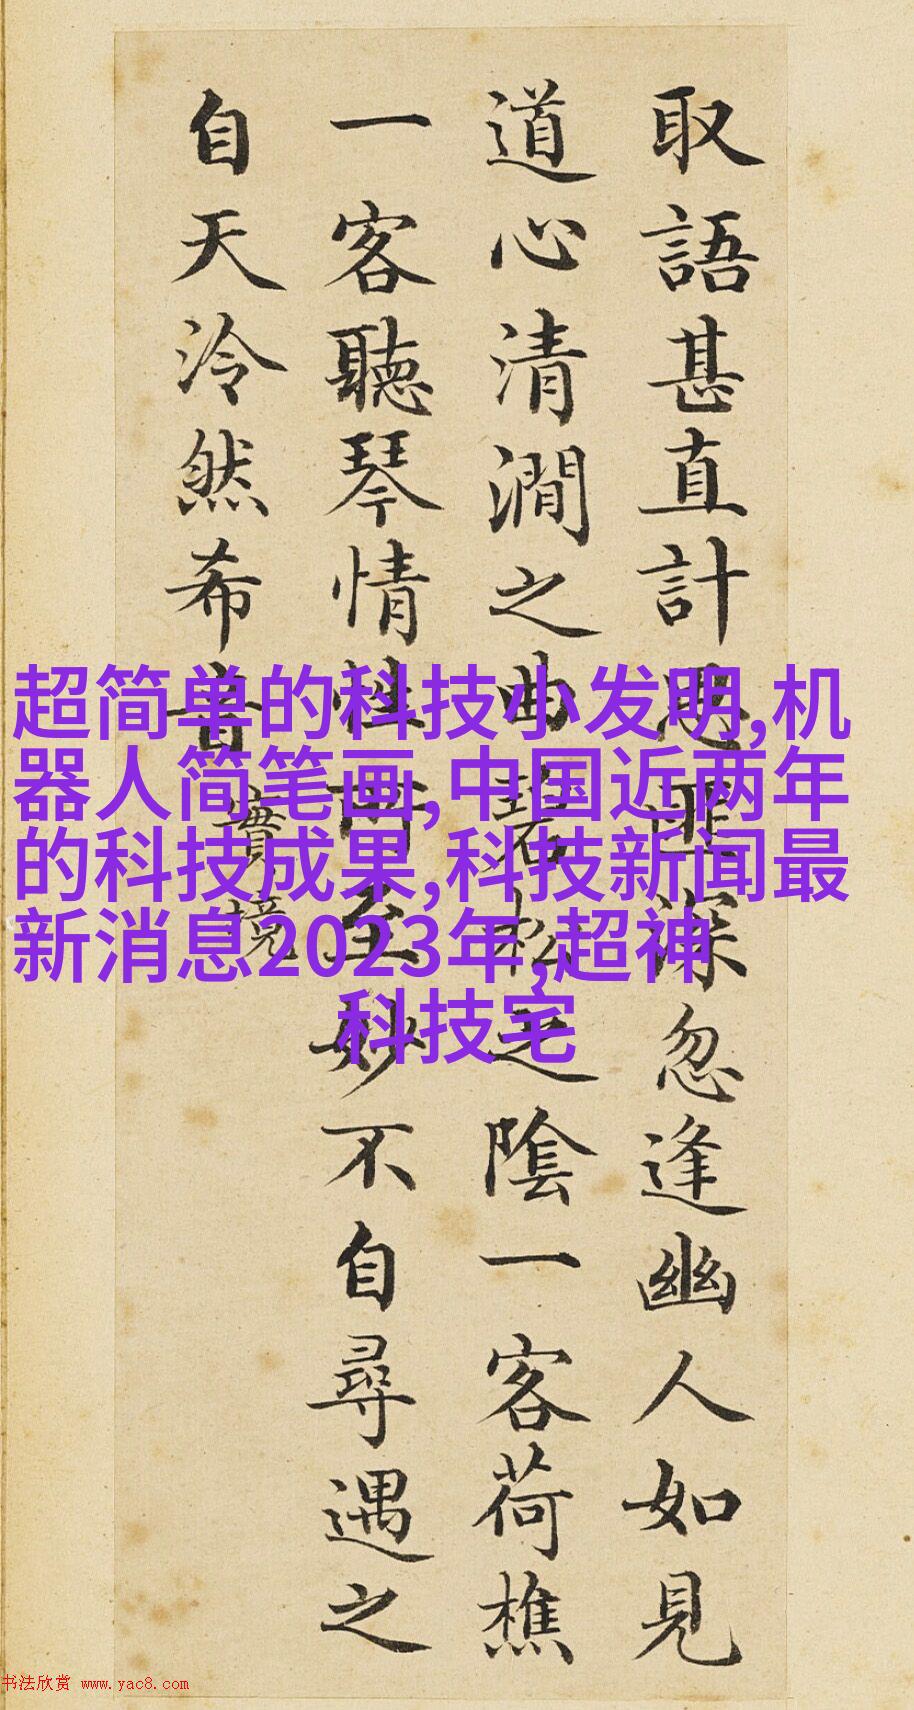 取語甚直計思匪深忽逢幽人如見
道心清澗之曲碧松之陰一客荷樵
一客聽琴情性所至妙不自尋遇之
自天泠然希音
實境
超简单的科技小发明,机
器人简笔画,中国近两年
的科技成果,科技新闻最
新消息2023年,超神
科技宅
书法欣赏 www.yac8.com